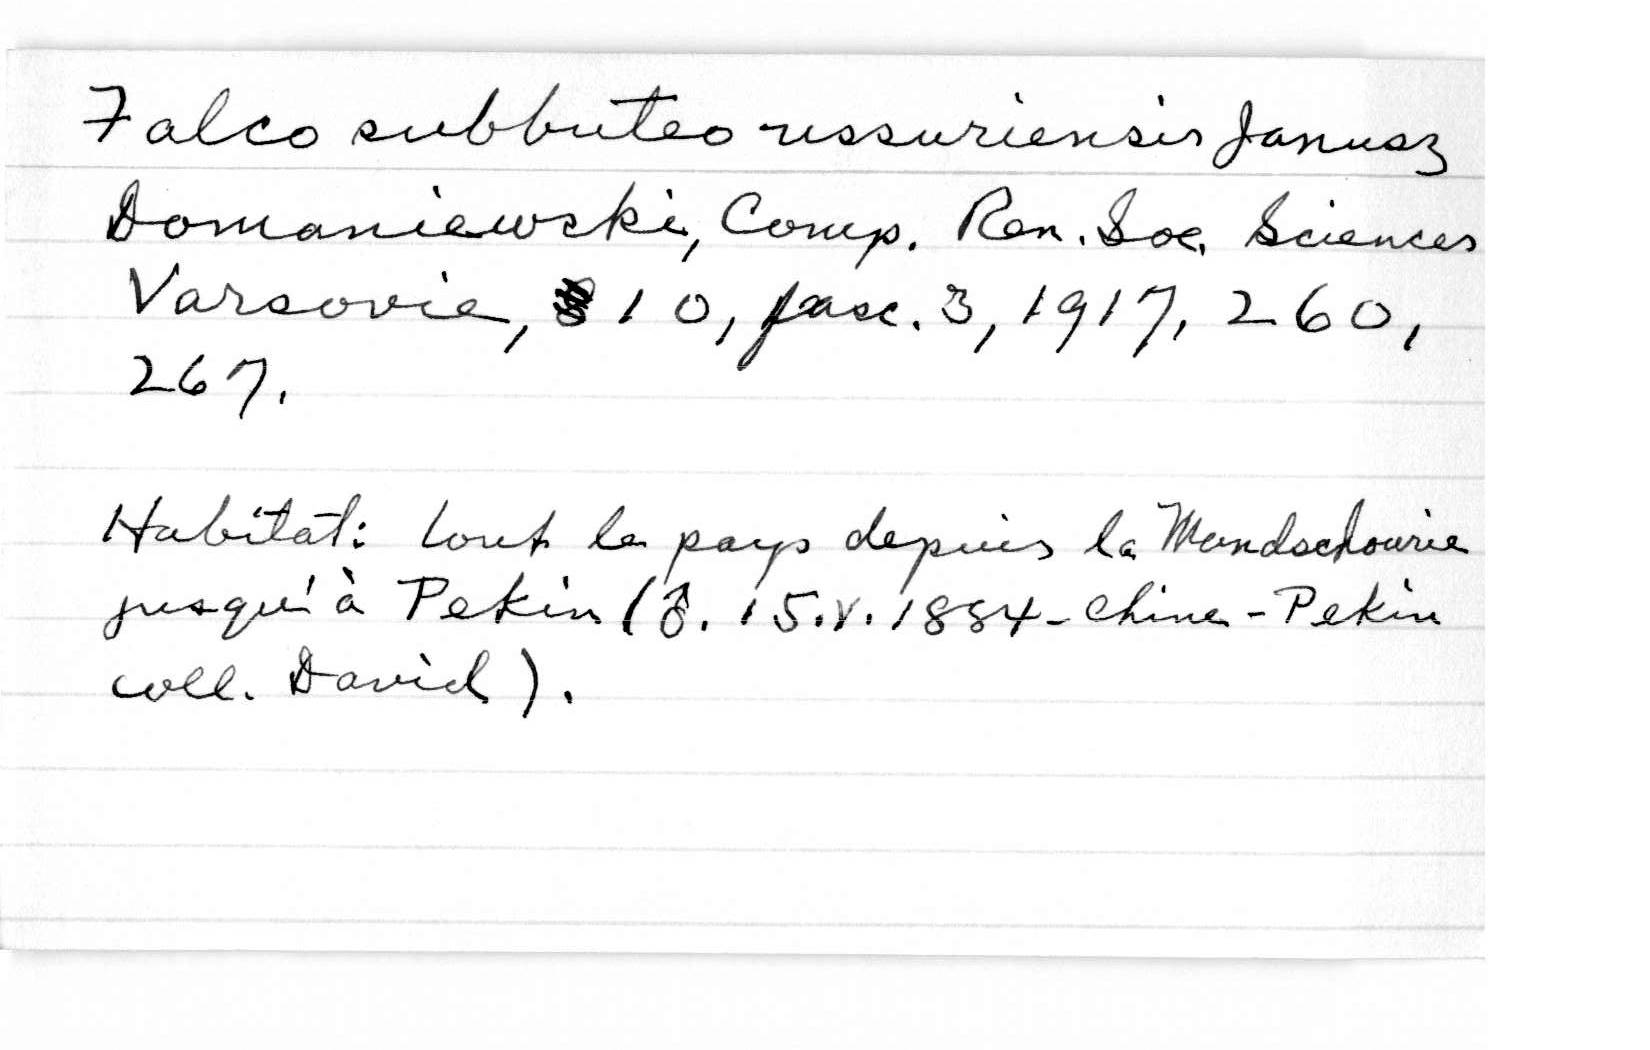 Falco subbuteo ussuriensis Janusz
Domaniewski, Comp. Ren. Soc. Sciences
Varsovie, 10, fasc. 3, 1917, 260,
267.
Habitat: tout le pays depuis la Mandschourie
jusqu'à Pekin (♂. 15.V.1884 - Chine - Pekin
coll. David).